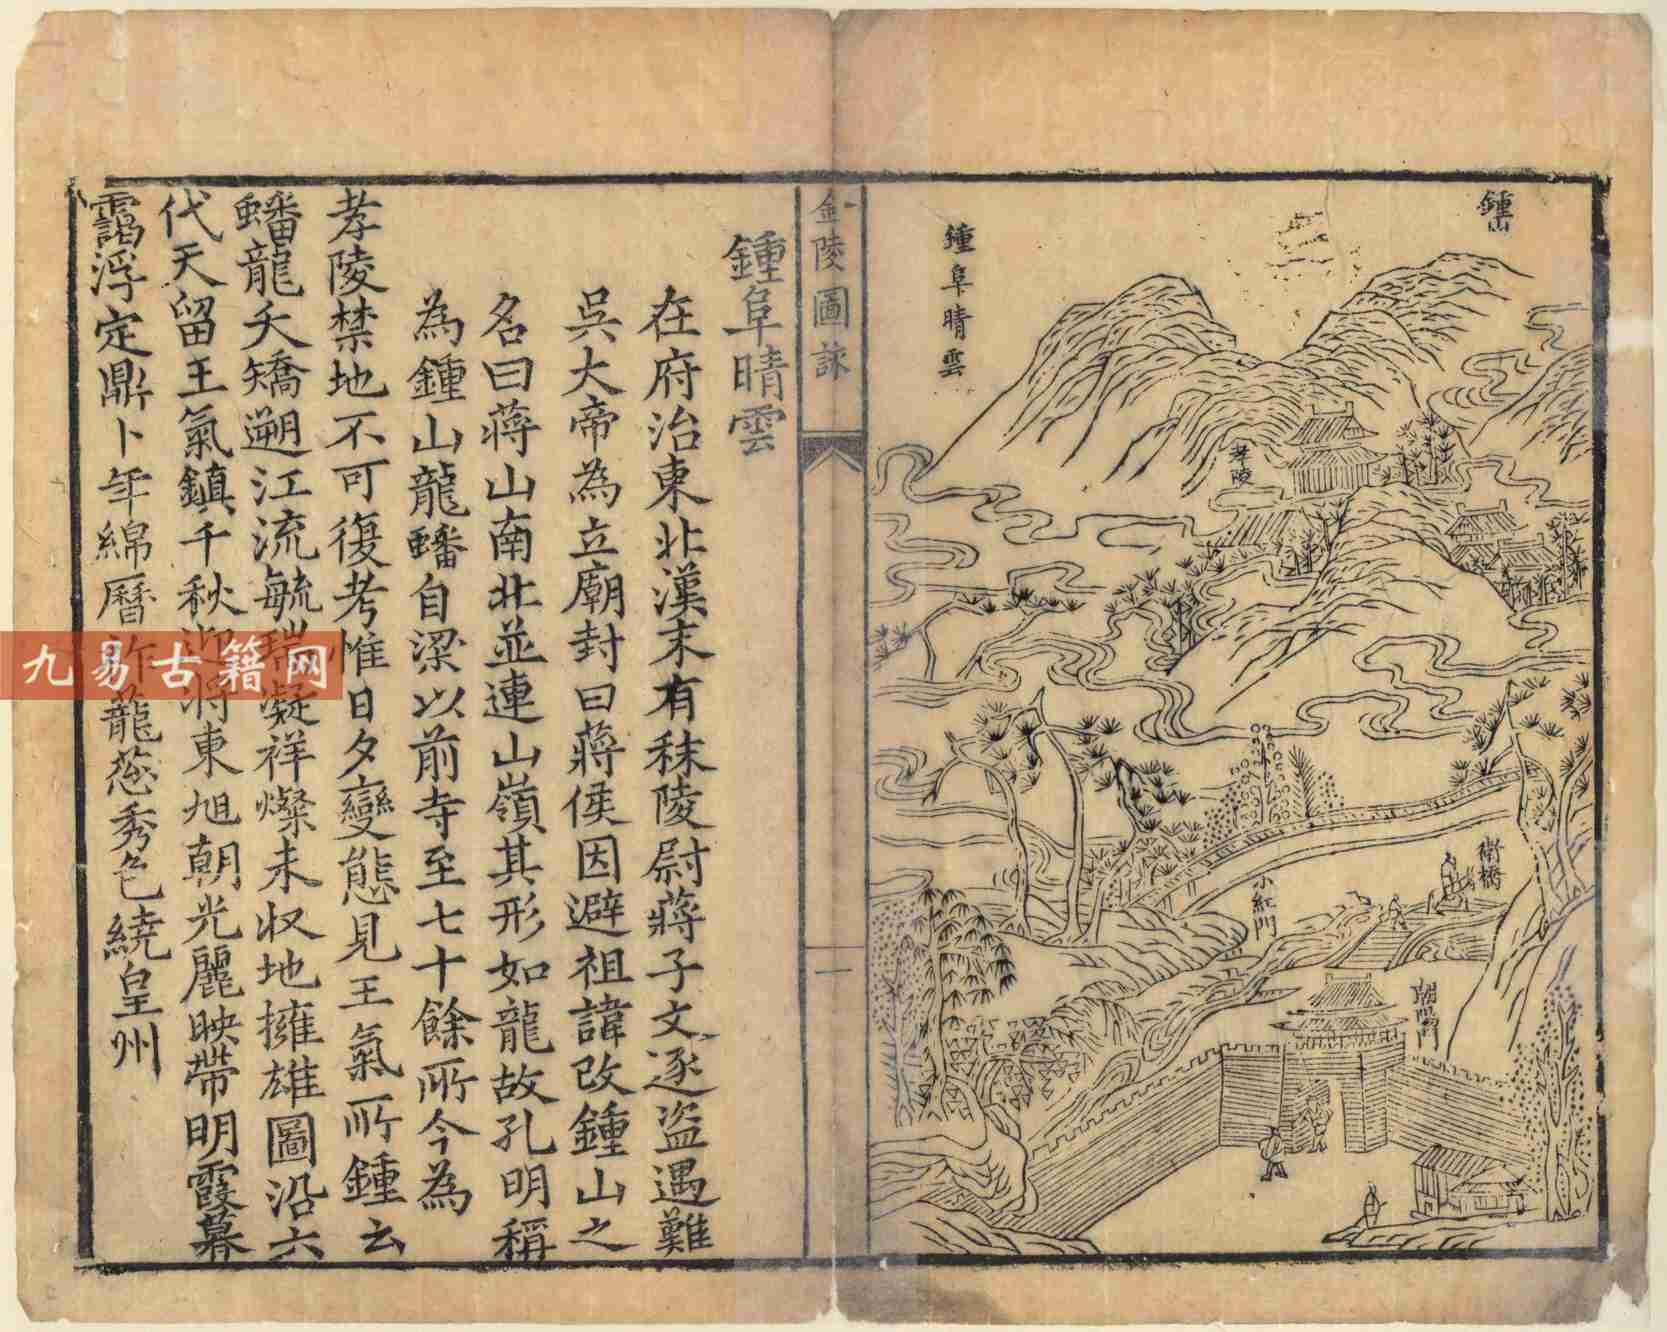 鍾山
鍾阜晴雲
孝陵
衛橋
小紅門
朝陽門
金陵圖詠
一
鍾阜晴雲
在府治東北漢末有秣陵尉蔣子文逐盜遇難
吳大帝為立廟封曰蔣侯因避祖諱改鍾山之
名曰蔣山南北並連山嶺其形如龍故孔明稱
為鍾山龍蟠自梁以前寺至七十餘所今為
孝陵禁地不可復考惟日夕變態見王氣所鍾云
蟠龍夭矯遡江流毓瑞凝祥燦未収地擁雄圖沿六
代天留王氣鎮千秋迎將東旭朝光麗映帶明霞暮
靄浮定鼎卜年綿曆祚蘢葱秀色繞皇州
九易古籍网